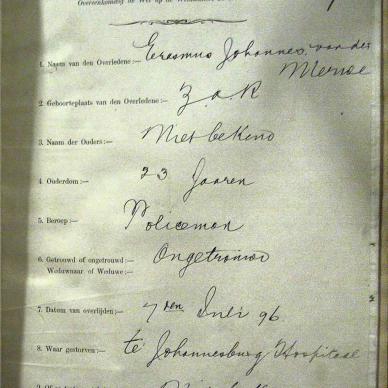 Overeenkomstig de Wet op de
Erasmus Johannes van der
1. Naam van den Overledene:— Merwe
2. Geboorteplaats van den Overledene:— Z.A.R
3. Naam der Ouders:— Niet bekend
4. Ouderdom:— 23 Jaaren
5. Beroep:— Policeman
6. Getrouwd of ongetrouwd:— Ongetrouwd
Weduwnaar of Weduwe:—
7. Datum van overlijden:— 7den Juli 96
8. Waar gestorven:— te Johannesburg Hospitaal